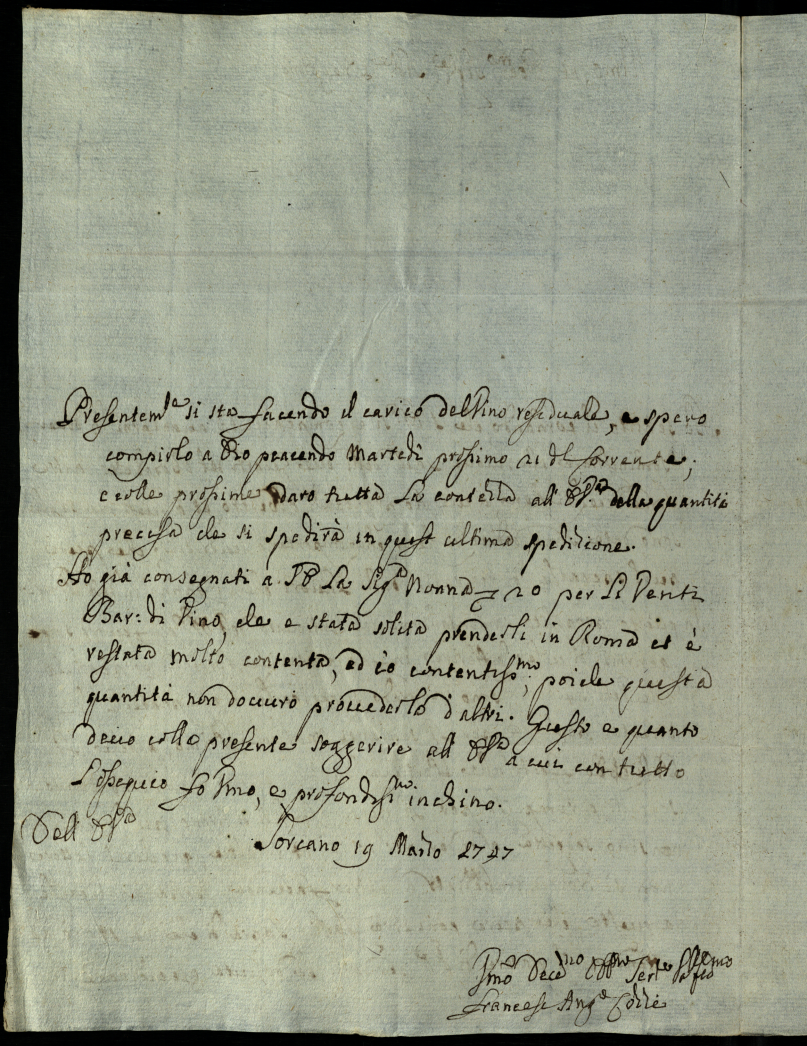 Presentem.te si sta facendo il carico del Vino residuale, e spero
compirlo a Dio piacendo Martedi prossimo 21 del Corrente;
e colle prossime daro tutta la contezza all' della quantità
precisa che si spedirà in quest ultima spedizione.
Ho già consegnati a La Sig.ra Nonna 20 per Li Venti
Bar: di Vino, che e stata solita prenderli in Roma et è
restata molto contenta, ed io contentiss.mo, poiche questa
quantità non dovero provederla d'altri. Questo e quanto
devo colla presente suggerire all' a cui con tutto
L'ossequio fo Umo, e profondiss.mo inchino.
Dell
Sorcano 19 Marzo 1747
Francesc Ang.o